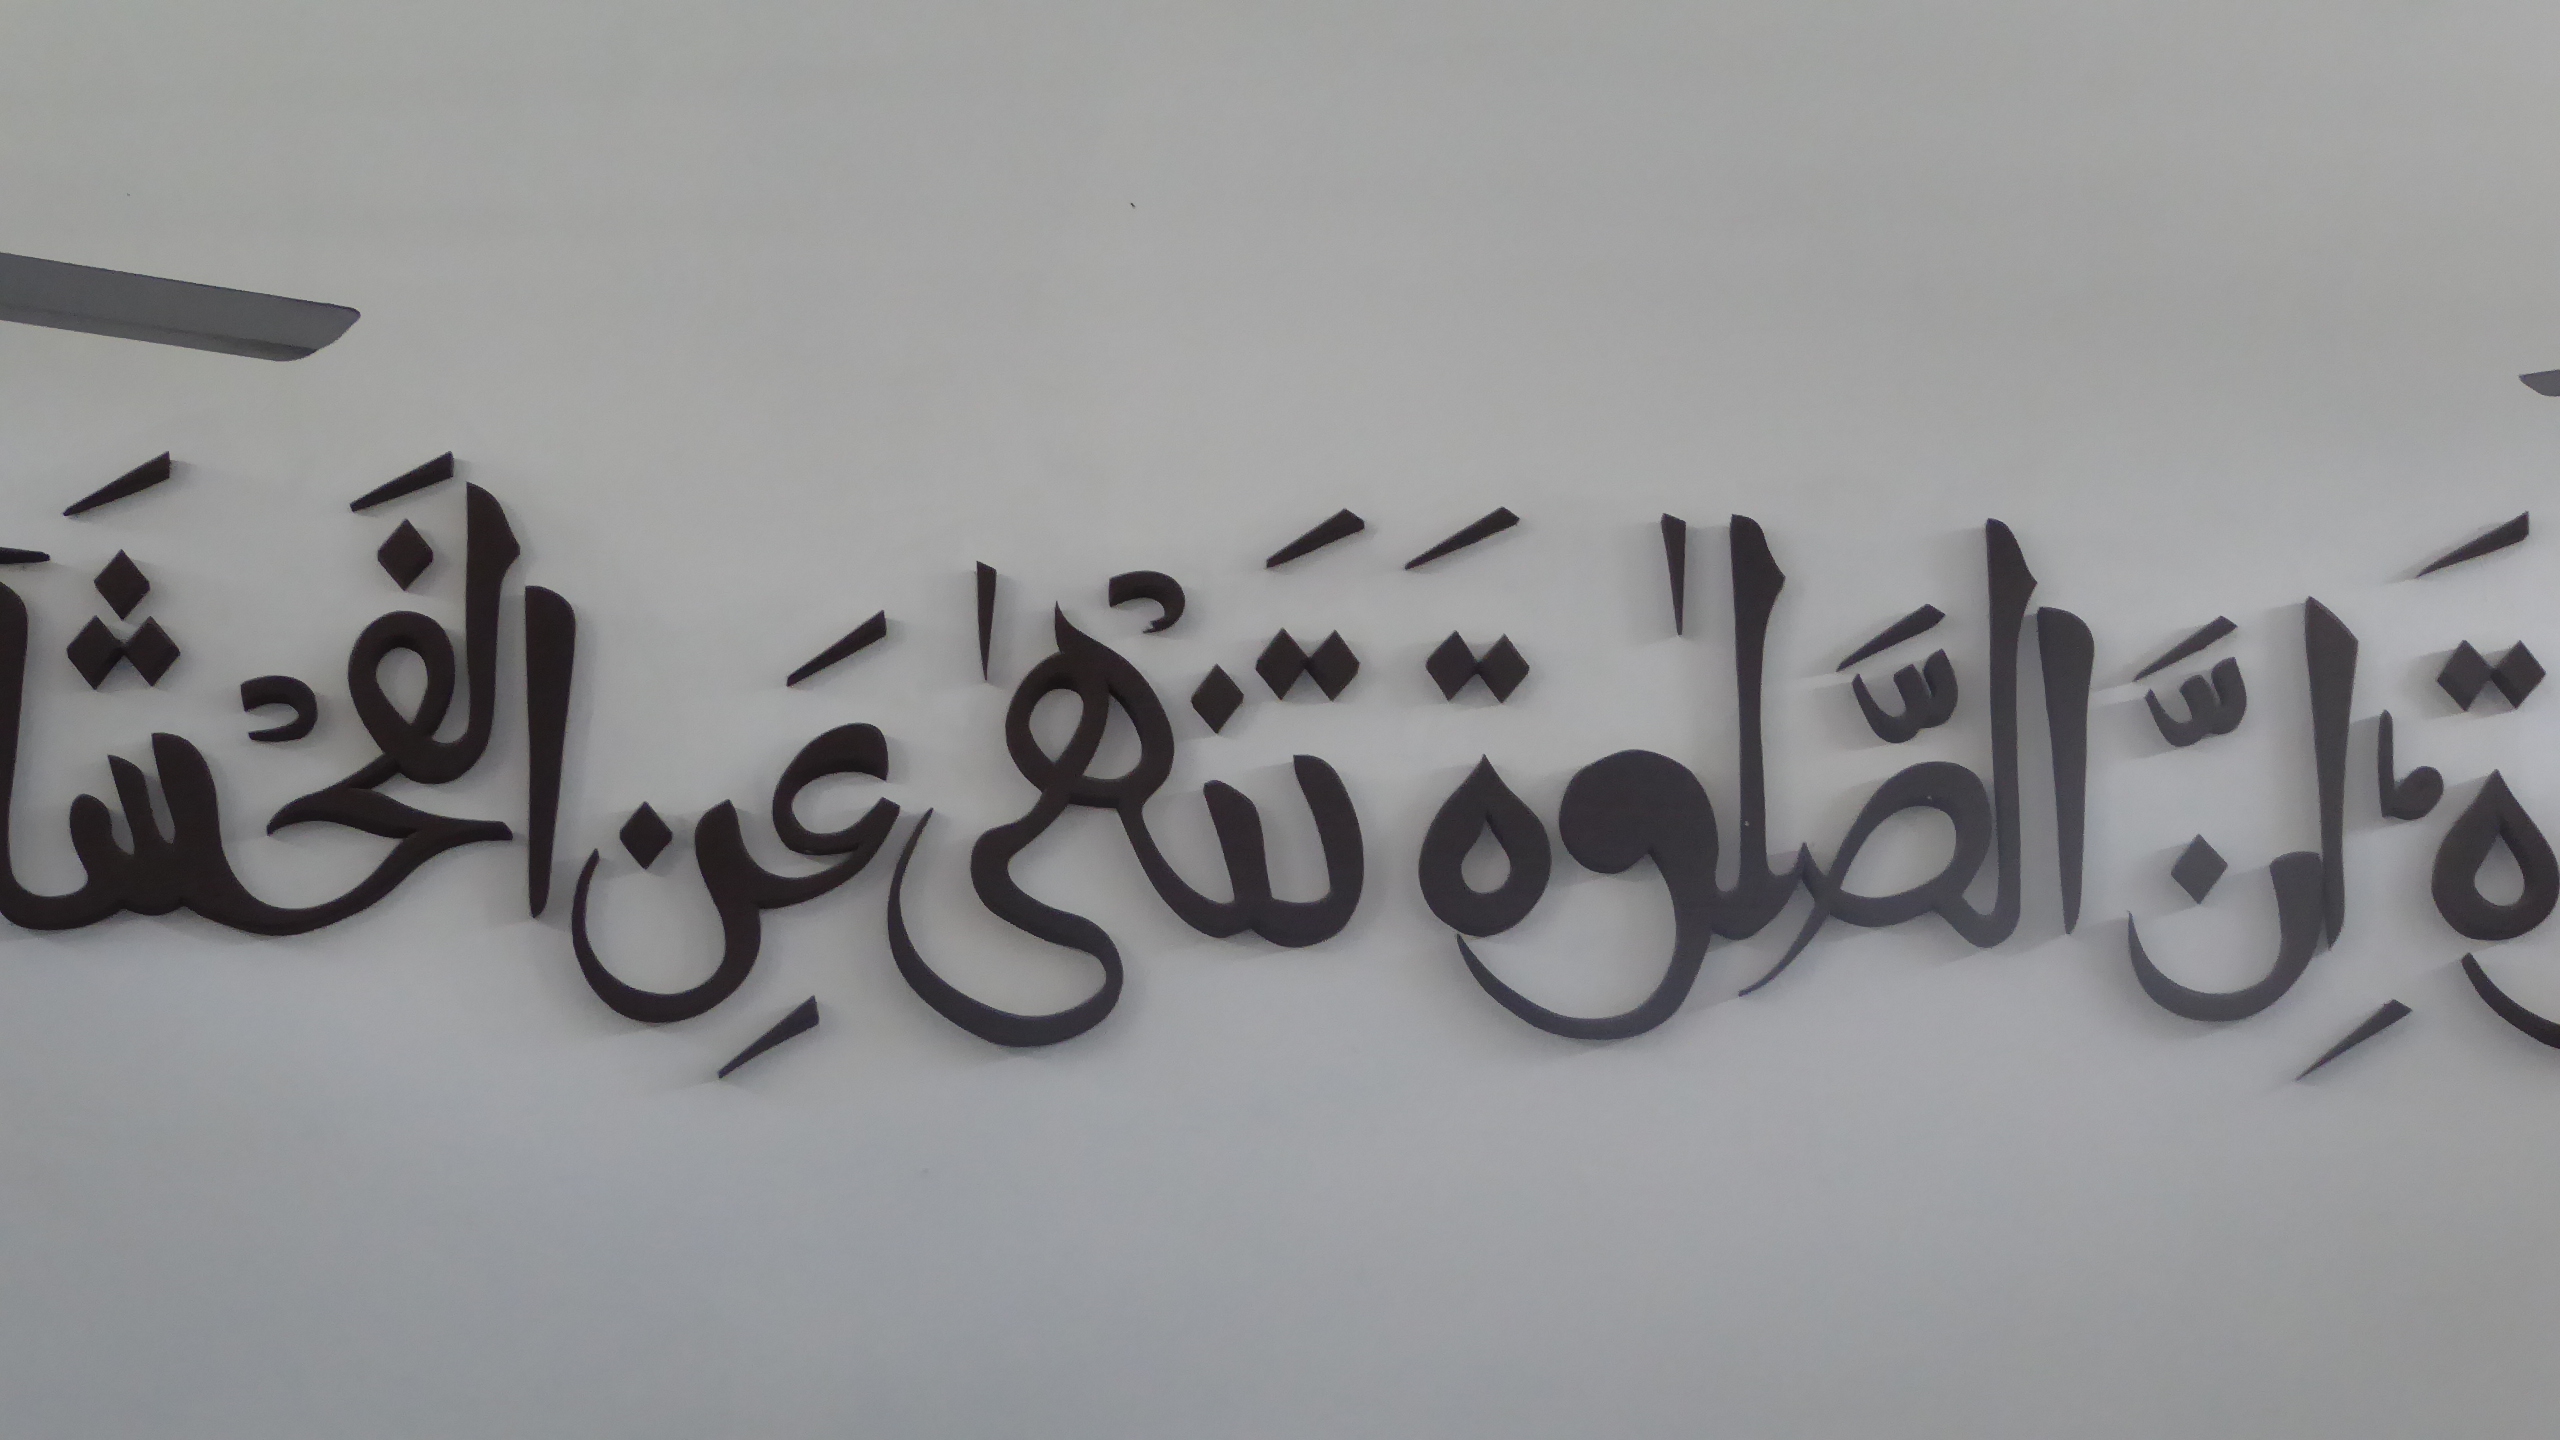 وةَ ۖ اِنَّ الصَّلٰوةَ تَنْهٰى عَنِ الْفَحْشَا